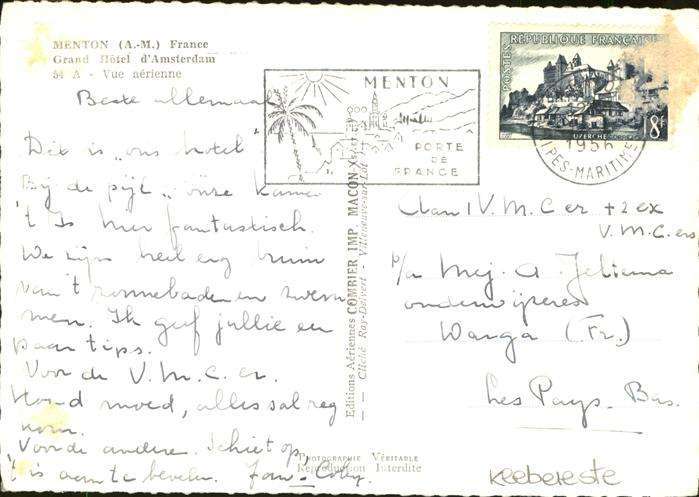 MENTON (A.-M.) France
Grand Hôtel d'Amsterdam
54 A - Vue aérienne
Beste allemaal
Dit is „ons hotel"
Bij de pijl „onze kamer
't Is hier fantastisch.
We zijn heel erg bruin
van 't zonnebaden en zwem
men. Ik geef jullie een
paar tips.
Voor de V.M.C. er.
Houd moed, alles sal reg
kom.
Voor de andere. Schiet op,
't is aan te bevelen. Jan - Coby.
Editions Aériennes COMBIER IMP. MACON
Cliché Ray-Delvert - Villeneuve-sur-Lot
PHOTOGRAPHIE VÉRITABLE
Reproduction Interdite
MENTON
PORTE
DE
FRANCE
POSTES
RÉPUBLIQUE FRANÇAISE
UZERCHE
8F
1956
ALPES-MARITIMES
Aan 1 V.M.C er + 2 ex
V.M.C. ers
p/a Mej. A. Jeltema
onderwijzeres
Warga (Fr.)
Les Pays-Bas.